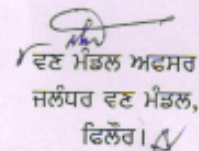 ਵਣ ਮੰਡਲ ਅਫਸਰ
ਜਲੰਧਰ ਵਣ ਮੰਡਲ,
ਫਿਲੌਰ।